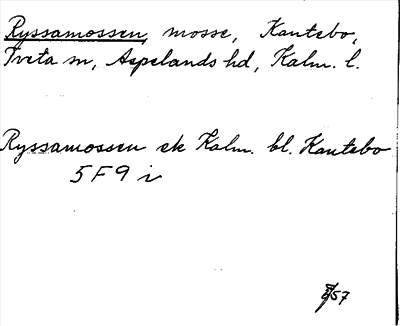 Ryssamossen, mosse, Kantebo,
Tveta sn, Aspelands hd, Kalm. l.
Ryssamossen ek Kalm. bl. Kantebo
5F9 i
57